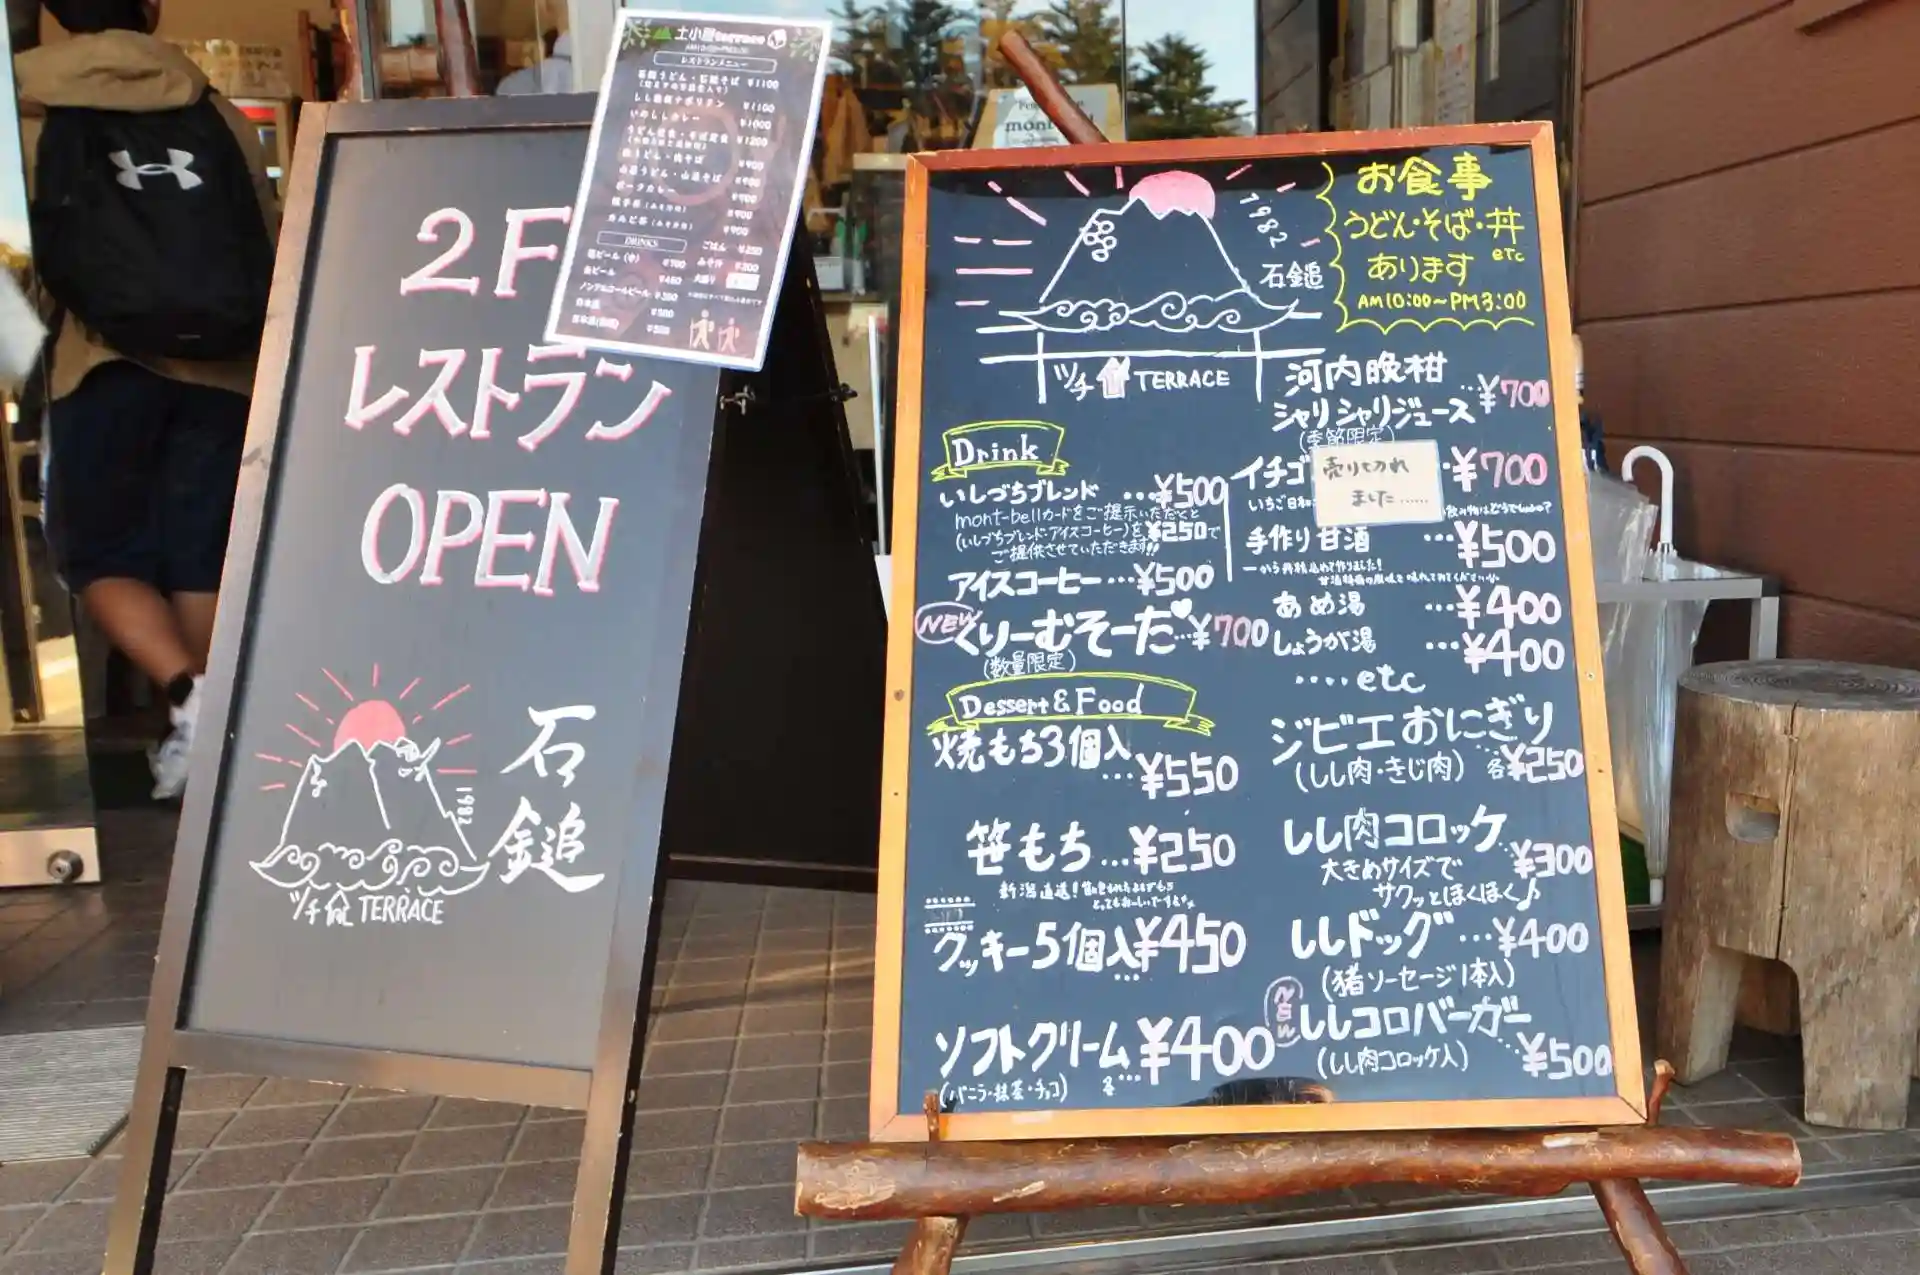 土小屋terrace
レストランメニュー
石鎚うどん・石鎚そば ¥1100
¥1100
いのししカレー ¥1000
うどん定食・そば定食 ¥1200
¥900
¥900
ポークカレー ¥900
¥900
¥900
DRINKS
生ビール(中) ¥700
缶ビール ¥450
ノンアルコールビール ¥350
日本酒 ¥500
ごはん ¥250
みそ汁 ¥200
大盛り
2F
レストラン
OPEN
1982
石鎚
ツチ TERRACE
mont
お食事
うどん・そば・丼
etc
あります
AM10:00~PM3:00
1982
石鎚
ツチ TERRACE
Drink
いしづちブレンド …¥500
mont-bellカードをご提示いただくと
(いしづちブレンド・アイスコーヒー)を¥250で
ご提供させていただきます!!
アイスコーヒー…¥500
NEW
くりーむそーだ…¥700
(数量限定)
河内晩柑
シャリシャリジュース …¥700
(季節限定)
イチゴ ・¥700
売り切れ
ました……
手作り甘酒 …¥500
一から丹精込めて作りました!
あめ湯 …¥400
しょうが湯 …¥400
‥‥etc
Dessert&Food
焼もち3個入
…¥550
笹もち…¥250
新潟直送!
クッキー5個入¥450
…
ソフトクリーム ¥400
(バニラ・抹茶・チョコ) 各…
ジビエおにぎり
(しし肉・きじ肉) 各¥250
しし肉コロッケ
…¥300
大きめサイズで
サクッとほくほく♪
ししドッグ…¥400
(猪ソーセージ1本入)
NEW
ししコロバーガー
(しし肉コロッケ入) …¥500